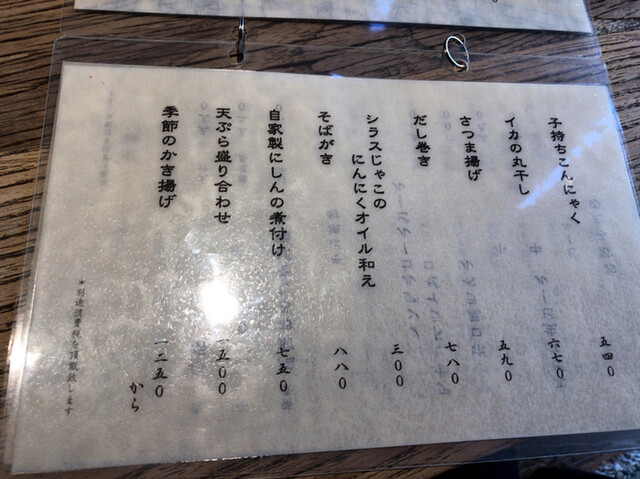 子持ちこんにゃく 五四〇
イカの丸干し 六七〇
さつま揚げ 五九〇
だし巻き 七八〇
シラスじゃこの
にんにくオイル和え 三〇〇
そばがき 八八〇
自家製にしんの煮付け 七五〇
天ぷら盛り合わせ 一五〇〇
季節のかき揚げ 一二五〇
から
*別途消費税を頂戴致します